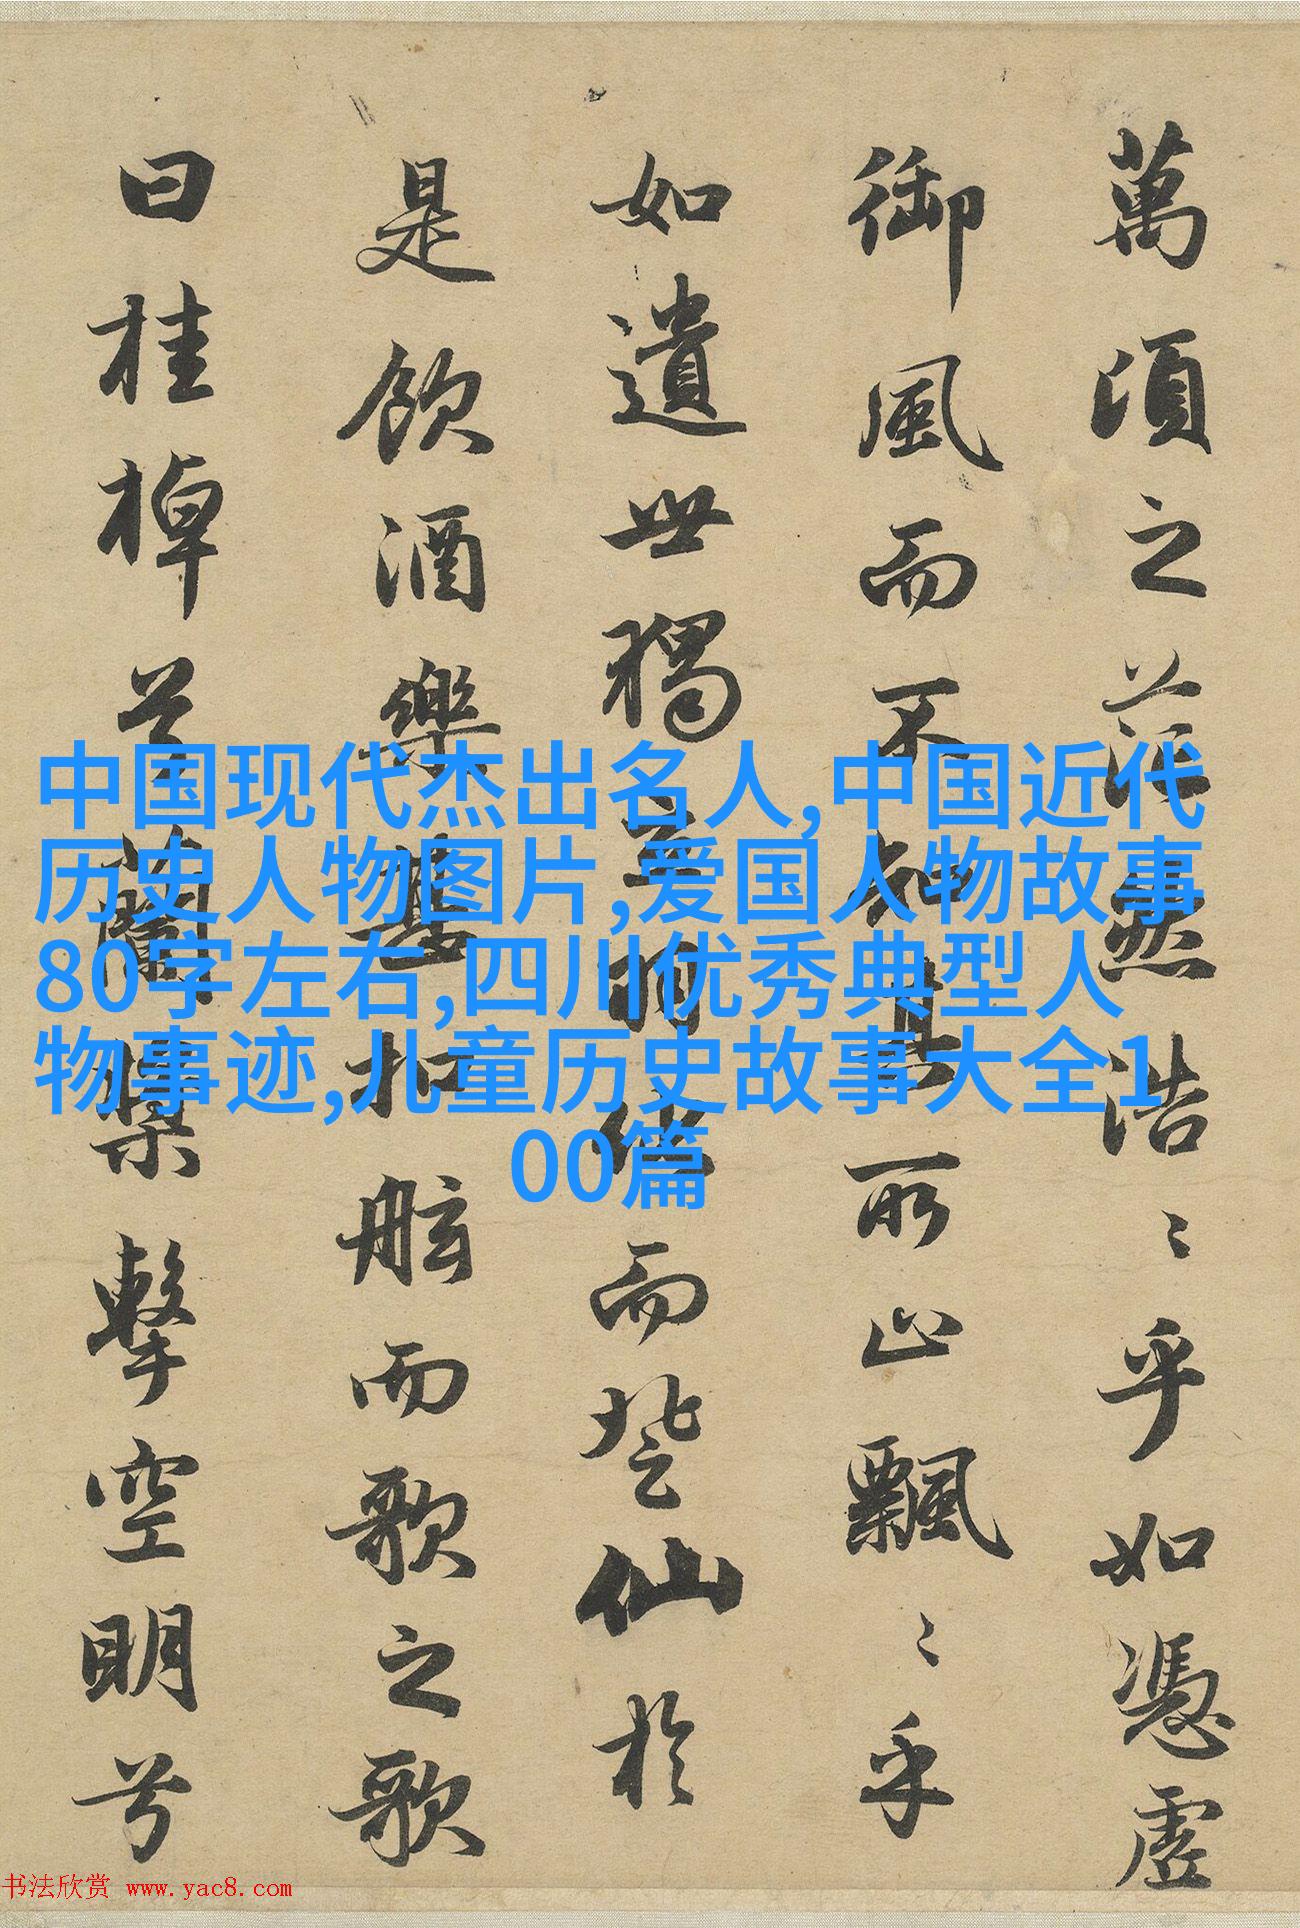 萬頃之茫然浩〻乎如憑虛
御風而不知其所止飄〻乎
如遺世獨立羽化而登仙於
是飲酒樂甚扣舷而歌之歌
曰桂棹兮蘭槳擊空明兮
中国现代杰出名人,中国近代
历史人物图片,爱国人物故事
80字左右,四川优秀典型人
物事迹,儿童历史故事大全1
00篇
书法欣赏 www.yac8.com